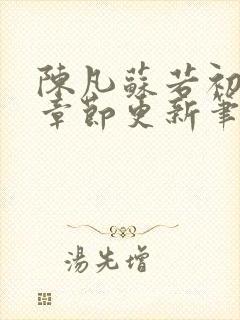 陳凡蘇若初
章節更新筆
湯先增